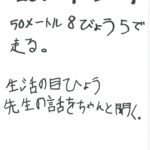 50メートル8びょう5で
走る。
生活の目ひょう
先生の話をちゃんと聞く。